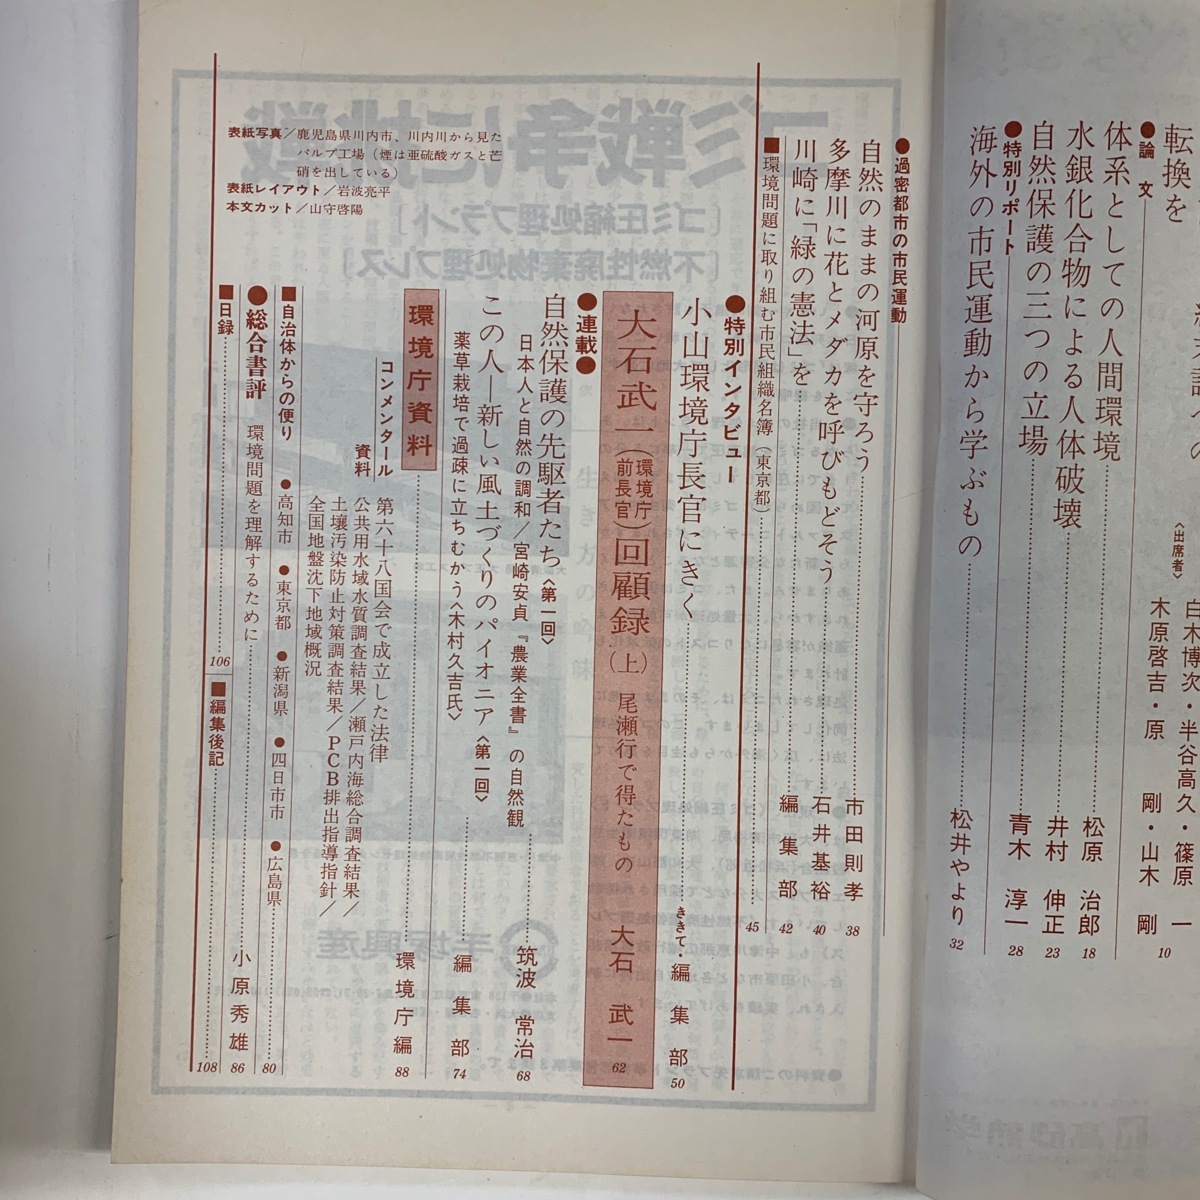 転換を
〈出席者〉
白木博次・半谷高久・篠原 一
木原啓吉・原 剛・山木 剛
10
●論 文
体系としての人間環境
松原 治郎
18
水銀化合物による人体破壊
井村 伸正
23
自然保護の三つの立場
青木 淳一
28
●特別リポート
海外の市民運動から学ぶもの
松井やより
32
●過密都市の市民運動
自然のままの河原を守ろう
市田則孝
38
多摩川に花とメダカを呼びもどそう
石井基裕
40
川崎に「緑の憲法」を
編集部
42
■環境問題に取り組む市民組織名簿（東京都）
45
●特別インタビュー
小山環境庁長官にきく
ききて・編集部
50
大石武一（環境庁前長官）回顧録（上） 尾瀬行で得たもの
大石 武一
62
●連載●
自然保護の先駆者たち〈第一回〉
日本人と自然の調和／宮崎安貞『農業全書』の自然観
筑波 常治
68
この人―新しい風土づくりのパイオニア〈第一回〉
薬草栽培で過疎に立ちむかう〈木村久吉氏〉
編集部
74
環境庁資料
環境庁編
88
コンメンタール 第六十八国会で成立した法律
資料 公共用水域水質調査結果／瀬戸内海総合調査結果／
土壌汚染防止対策調査結果／PCB排出指導指針／
全国地盤沈下地域概況
■自治体からの便り ●高知市 ●東京都 ●新潟県 ●四日市市 ●広島県
80
●総合書評 環境問題を理解するために
小原秀雄
86
■日録
106
■編集後記
108
表紙写真／鹿児島県川内市、川内川から見た
パルプ工場（煙は亜硫酸ガスと芒
硝を出している）
表紙レイアウト／岩波亮平
本文カット／山守啓陽